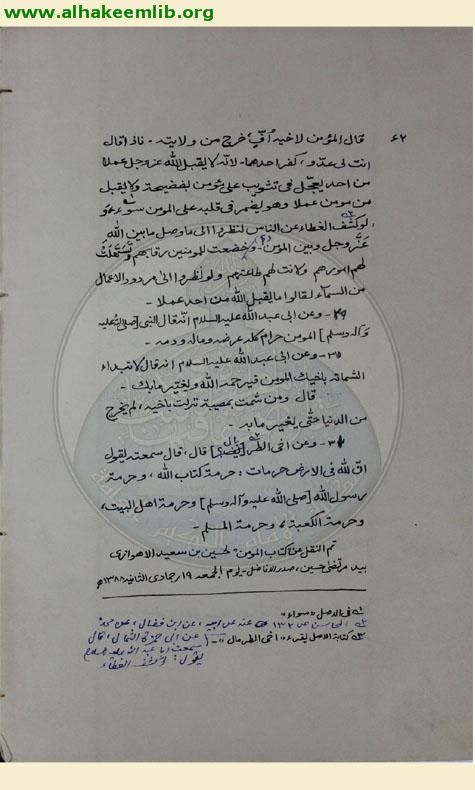 www.alhakeemlib.org
٦٢ قال المؤمن لاخيه اُفٍّ خرج من ولايته - فاذا قال
انت لى عدو، كفر احدهما - لانه لا يقبل الله عزوجل عملا
من احد يعجّل فى تثويب على مومن بفضيحته ولا يقبل
من مومن عملا وهو يضمر فى قلبه على المومن سوء
لو كُشف الغطاء عن الناس لنظروا الى ما وصل ما بين الله
عَزَّوجل وبين المومن - وخضعت للمومنين رقابهم وتسهّلت
لهم امورهم وكانت لهم طاعتهم ولو نظروا الى مردود الاعمال
من السمآء لقالوا ما يقبل الله من احد عملا -
وعن ابى عبد الله عليه السلام انه قال النبى [صلى الله عليه
وآله وسلم] المومن حرام كله عرضه وماله ودمه -
وعن ابى عبد الله عليه السلام انه قال لا تبداء
الشماتة باخيك المومن فيرحمه الله ويغيّر ما بك -
قال ومن شمت بمصيبة نزلت باخيه، لم يخرج
من الدنيا حتّى يغير ما به -
وعن اخى قال، قال سمعته يقول
انّ لله فى الارض حرمات: حرمة كتاب الله، وحرمة
رسول الله [صلى الله عليه وآله وسلم] وحرمة اهل البيت،
وحرمة الكعبة، وحرمة المسلم -
تم النقل عن كتاب المومن لحسين بن سعيد الاهوازى
بيد مرتضى حسين، صدر الافاضل - يوم الجمعه ١٩ جمادى الثانيه ١٣٨٨ھ
فى الاصل "سواء"
المحاسن ص ١٣٢ عنه عن ابيه، عن ابن فضال، عن محمد
كتابة الاصل يقرء "اخى الطرمال" - (عن ابى حمزة الثمالى، قال
سمعت ابا عبد الله عليه السلام
يقول: لو كُشف الغطاء